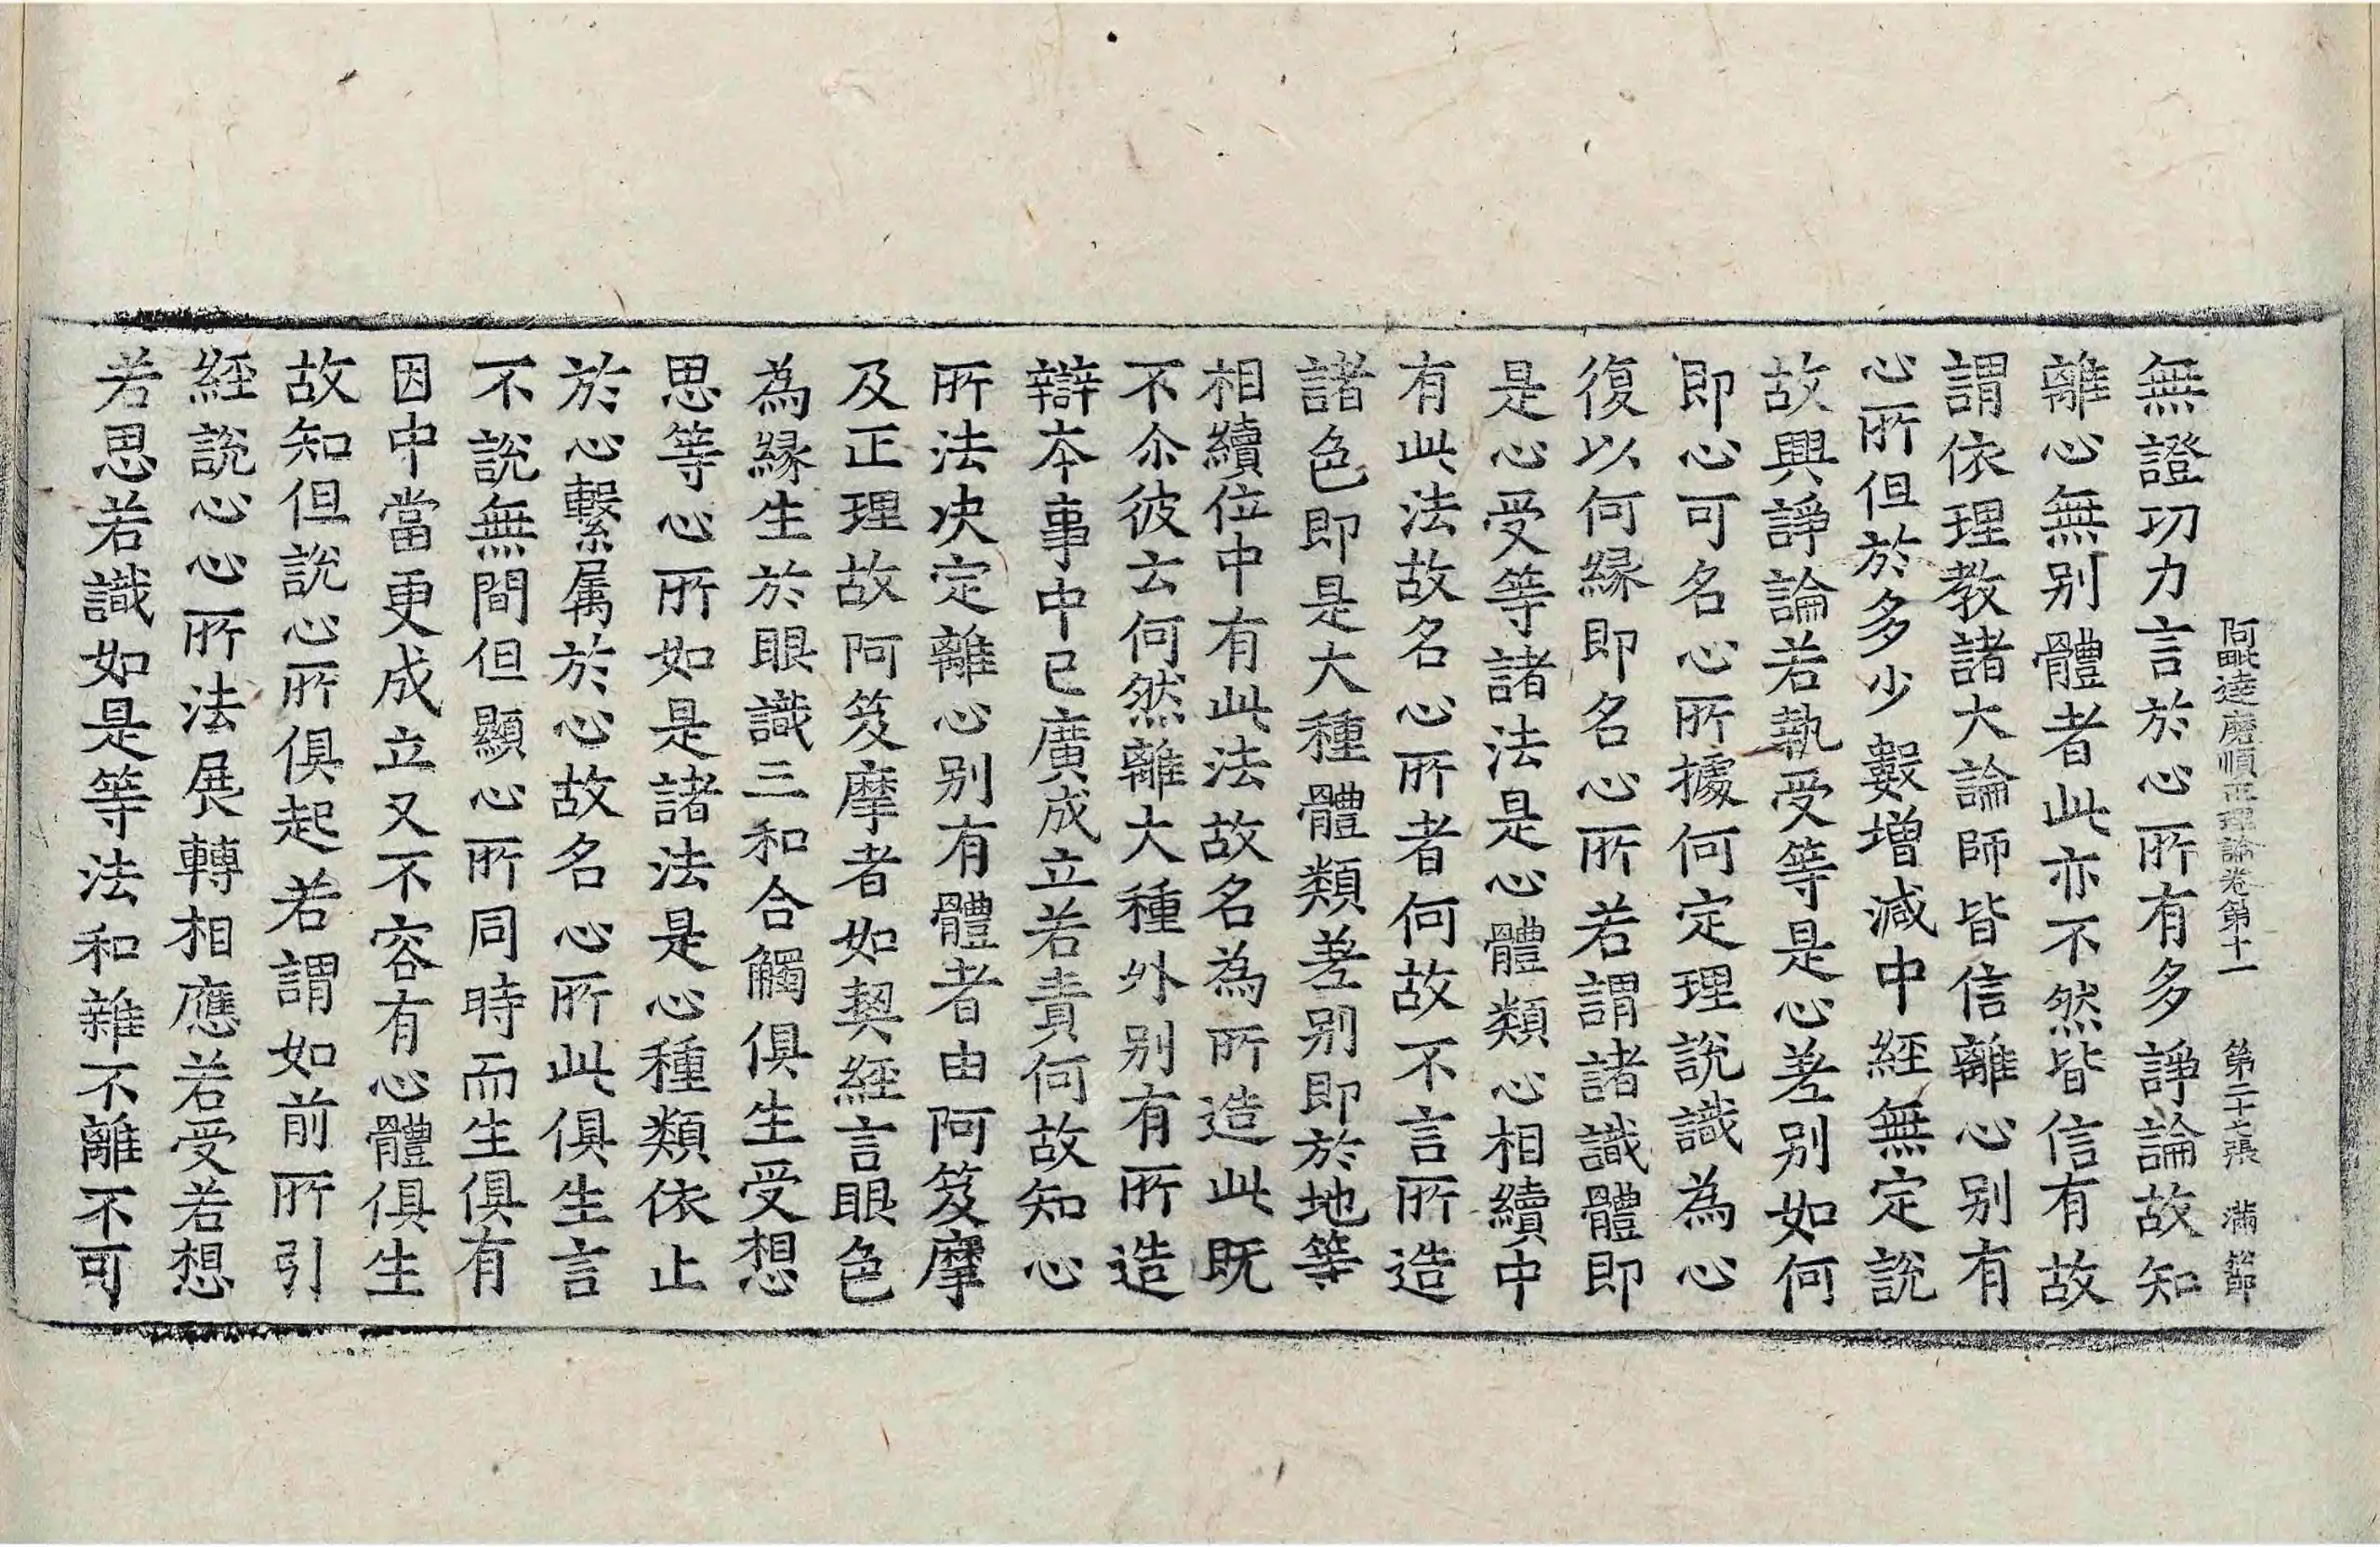 阿毗達磨順正理論卷第十一　第二十二張　滿節
無證功力言於心所有多諍論故知
離心無別體者此亦不然皆信有故
謂依理教諸大論師皆信離心別有
心所但於多少數增減中經無定說
故興諍論若執受等是心差別如何
即心可名心所據何定理說識為心
復以何緣即名心所若謂諸識體即
是心受等諸法是心體類心相續中
有此法故名心所者何故不言所造
諸色即是大種體類差別即於地等
相續位中有此法故名為所造此既
不尒彼云何然離大種外別有所造
辯本事中已廣成立若責何故知心
所法决定離心別有體者由阿笈摩
及正理故阿笈摩者如契經言眼色
為緣生於眼識三和合觸俱生受想
思等心所如是諸法是心種類依止
於心繫屬於心故名心所此俱生言
不說無間但顯心所同時而生俱有
因中當更成立又不容有心體俱生
故知但說心所俱起若謂如前所引
經說心心所法展轉相應若受若想
若思若識如是等法和雜不離不可